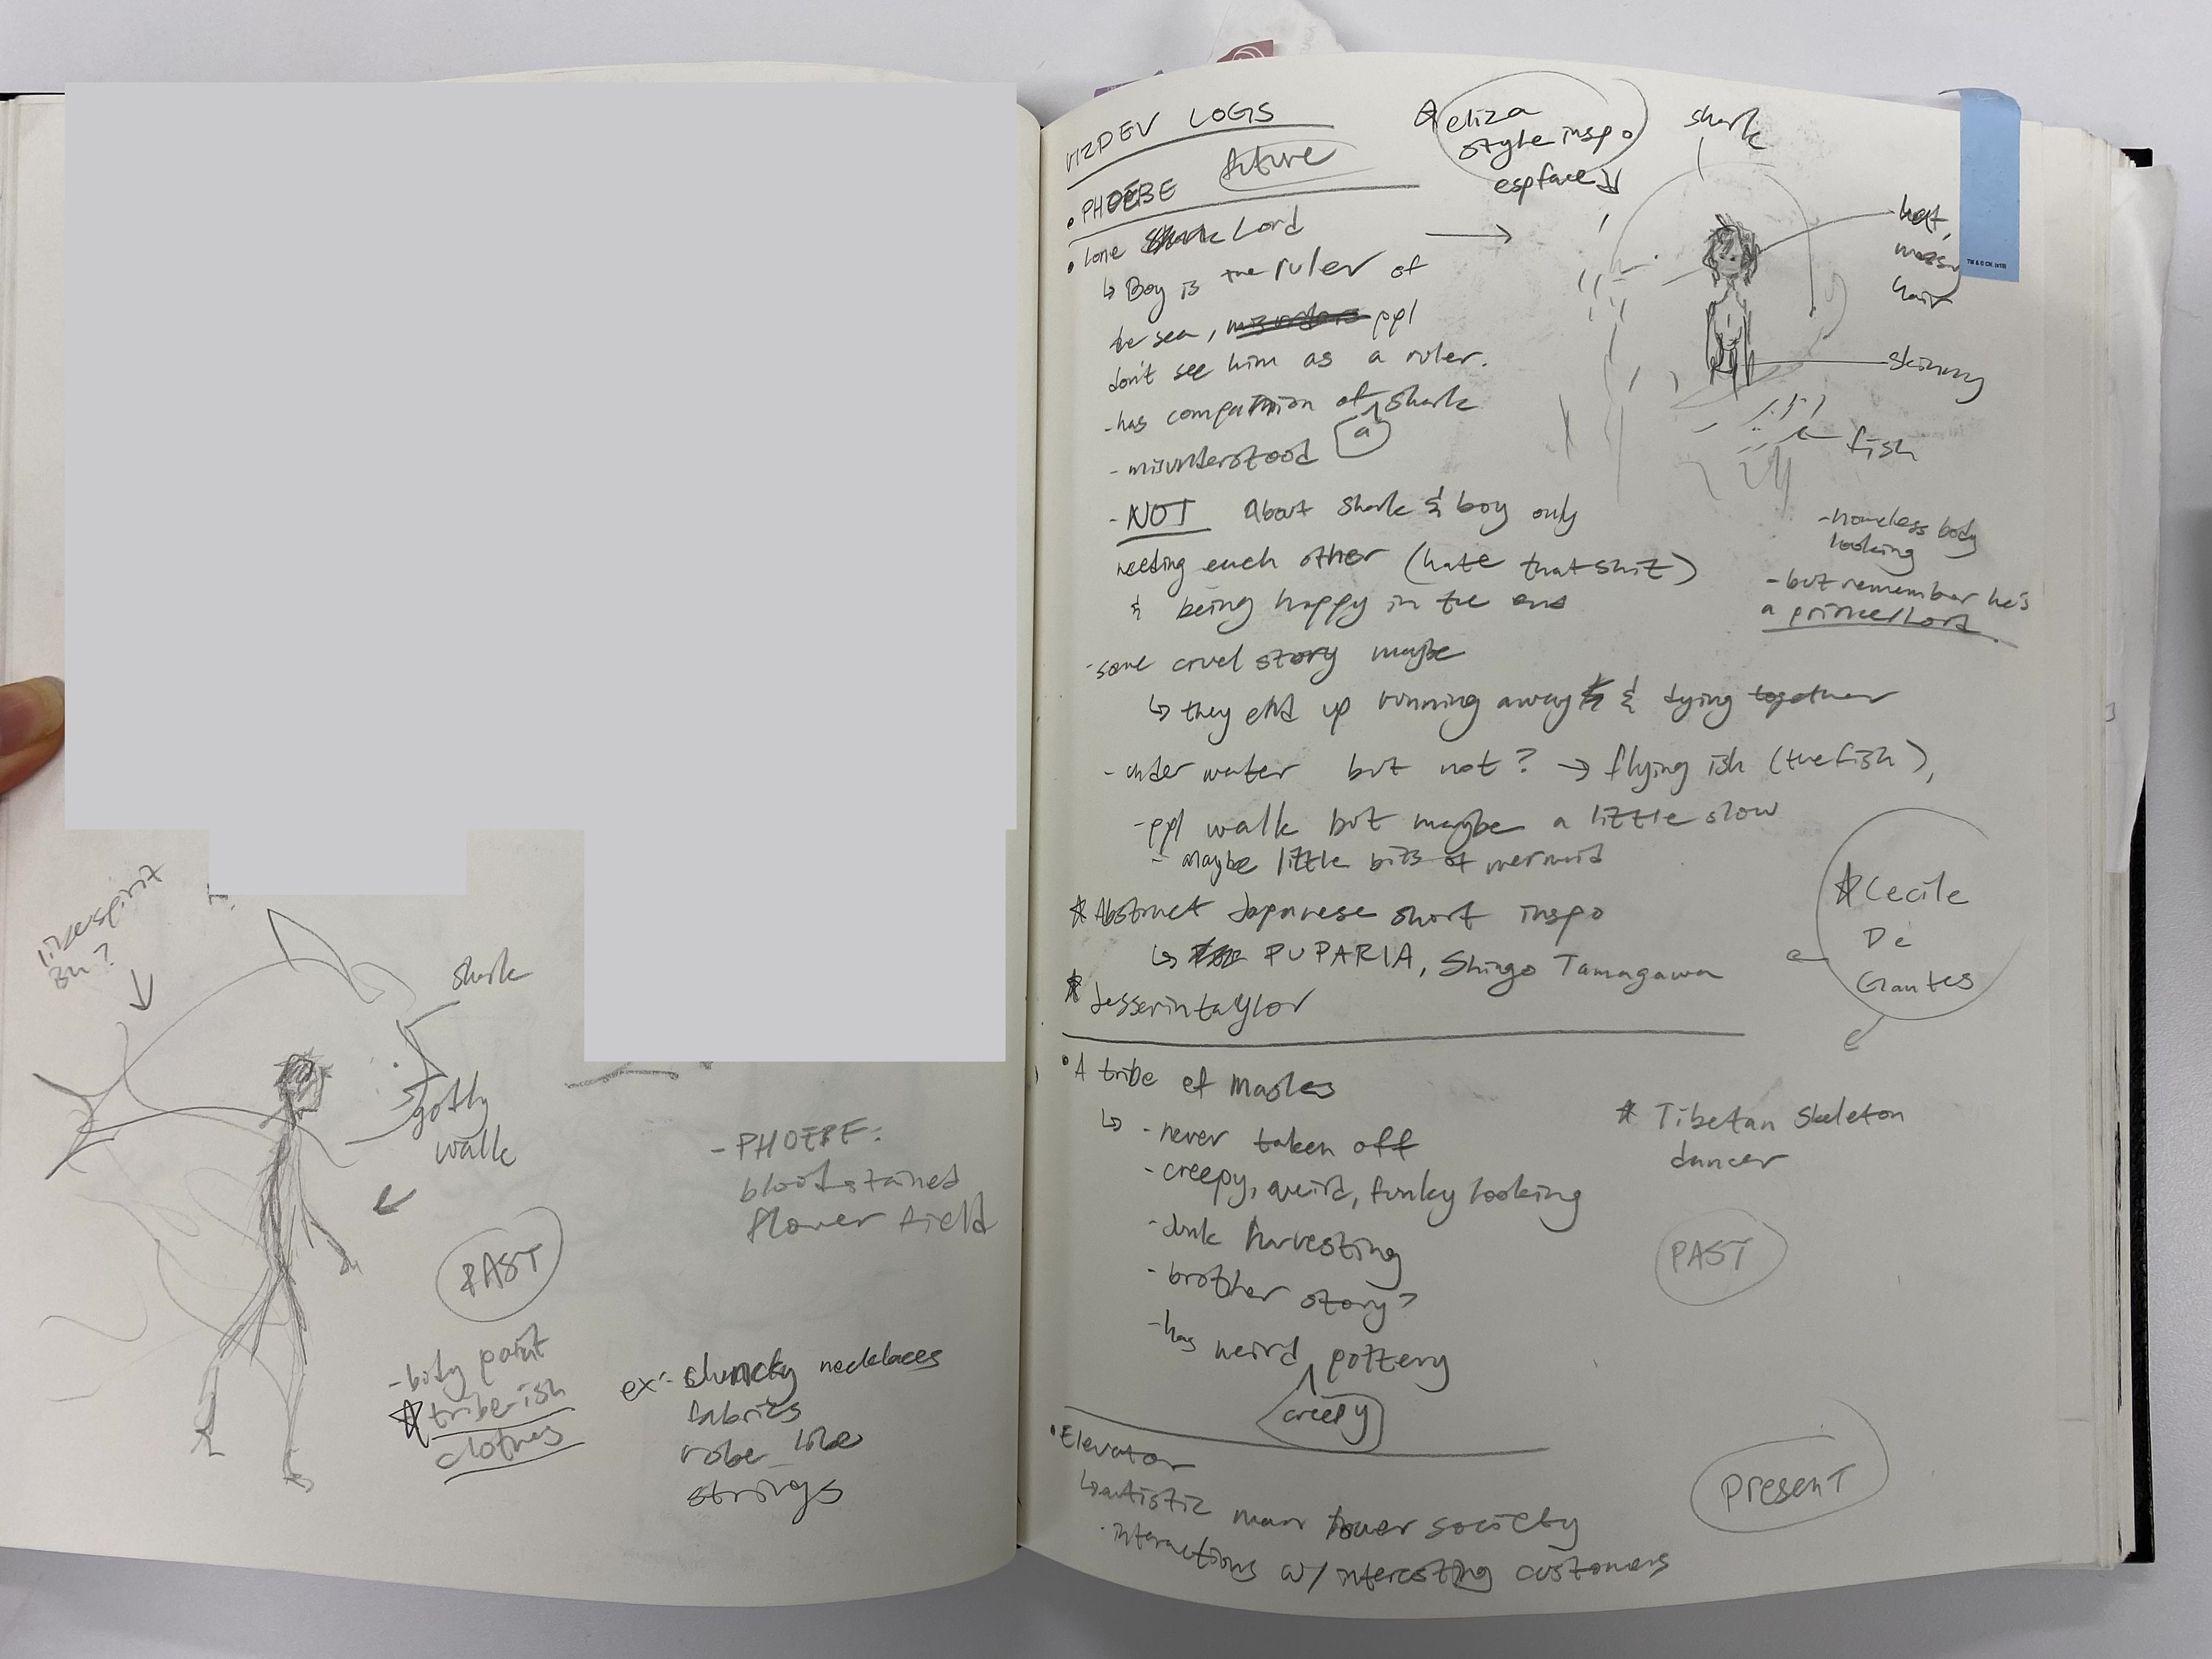 like spirit
?
shark
gothy
walk
PAST
- body paint
tribe-ish
clothes
- PHOEBE:
bloodstained
flower field
ex:- chuncky necklaces
fabrics
robe like
strings
VIZDEV LOGS
• PHOEBE future
• Lone Shark Lord
↳ Boy is the ruler of
the sea, ppl
don't see him as a ruler.
- has companion of a shark
- misunderstood
- NOT About shark & boy only
needing each other (hate that shit)
& being happy in the end
- some cruel story maybe
↳ they end up running away & dying together
- under water but not? → flying ish (the fish),
- ppl walk but maybe a little slow
- maybe little bits of mermaid
☆ Abstract Japanese short inspo
↳ PUPARIA, Shingo Tamagawa
☆ Jesserintaylor
☆ eliza
style inspo
esp face
shark
messy
hair
skinny
fish
- homeless body
looking
- but remember he's
a prince/Lord.
☆ Cecile
De
Gantes
• A tribe of Masks
↳ - never taken off
- creepy, weird, funky looking
- dark harvesting
- brother story?
- has weird creepy pottery
☆ Tibetan Skeleton
dancer
PAST
• Elevator
↳ autistic man society
- interactions w/ interesting customers
PRESENT